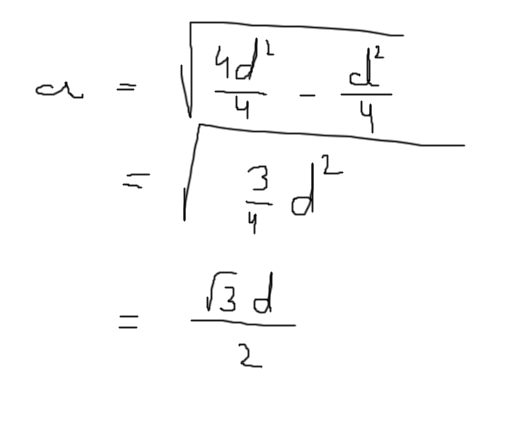 a = √(4d²/4 - d²/4)
= √(3/4 d²)
= √3 d / 2